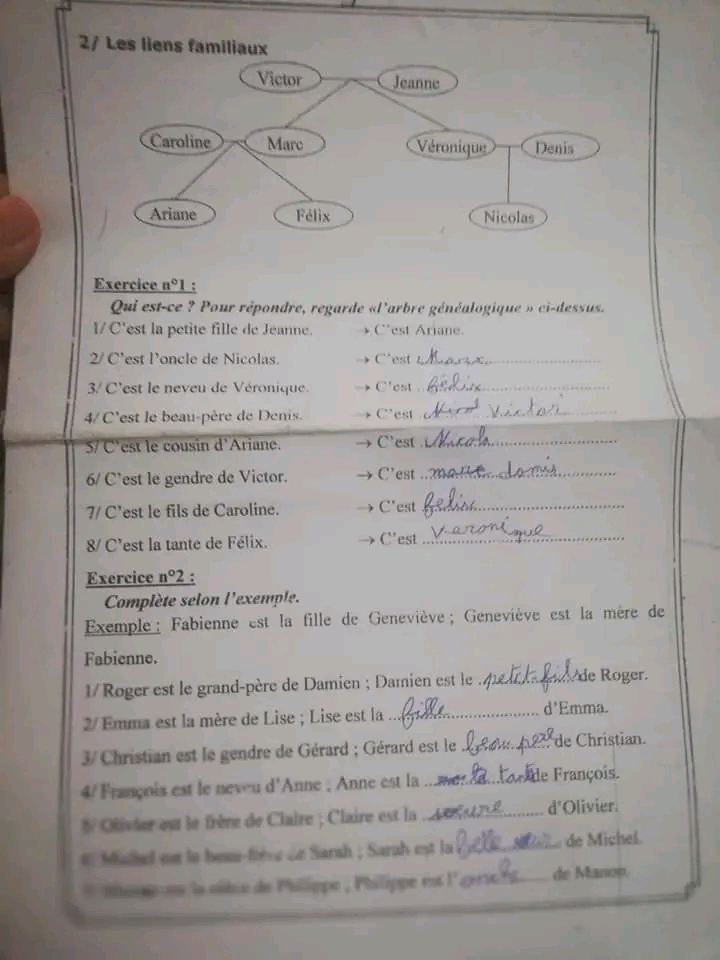 2/ Les liens familiaux
Victor Jeanne
Caroline Marc Véronique Denis
Ariane Félix Nicolas
Exercice n°1 :
Qui est-ce ? Pour répondre, regarde «l'arbre généalogique » ci-dessus.
1/ C'est la petite fille de Jeanne. → C'est Ariane.
2/ C'est l'oncle de Nicolas. → C'est
3/ C'est le neveu de Véronique. → C'est félix
4/ C'est le beau-père de Denis. → C'est Victor
5/ C'est le cousin d'Ariane. → C'est Nicola
6/ C'est le gendre de Victor. → C'est
7/ C'est le fils de Caroline. → C'est felix
8/ C'est la tante de Félix. → C'est Veronique
Exercice n°2 :
Complète selon l'exemple.
Exemple : Fabienne est la fille de Geneviève ; Geneviève est la mère de
Fabienne.
1/ Roger est le grand-père de Damien ; Damien est le petit fils de Roger.
2/ Emma est la mère de Lise ; Lise est la fille d'Emma.
3/ Christian est le gendre de Gérard ; Gérard est le beau pere de Christian.
4/ François est le neveu d'Anne ; Anne est la tante de François.
5/ Olivier est le frère de Claire ; Claire est la d'Olivier.
6/ Michel est le beau-frère de Sarah ; Sarah est la belle de Michel.
7/ Manon est la nièce de Philippe ; Philippe est l' de Manon.